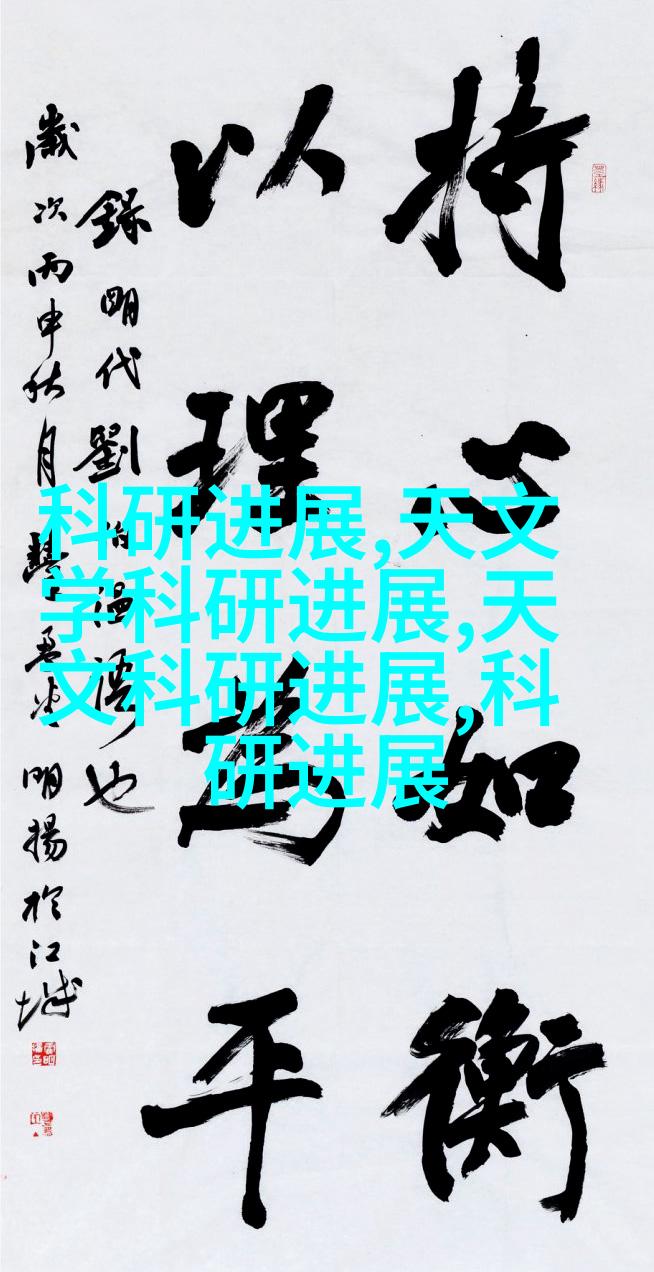 持心如衡
以理为平
錄明代劉伯温语也
歲次丙申秋月
明揚於江城
科研进展,天文
学科研进展,天
文科研进展,科
研进展